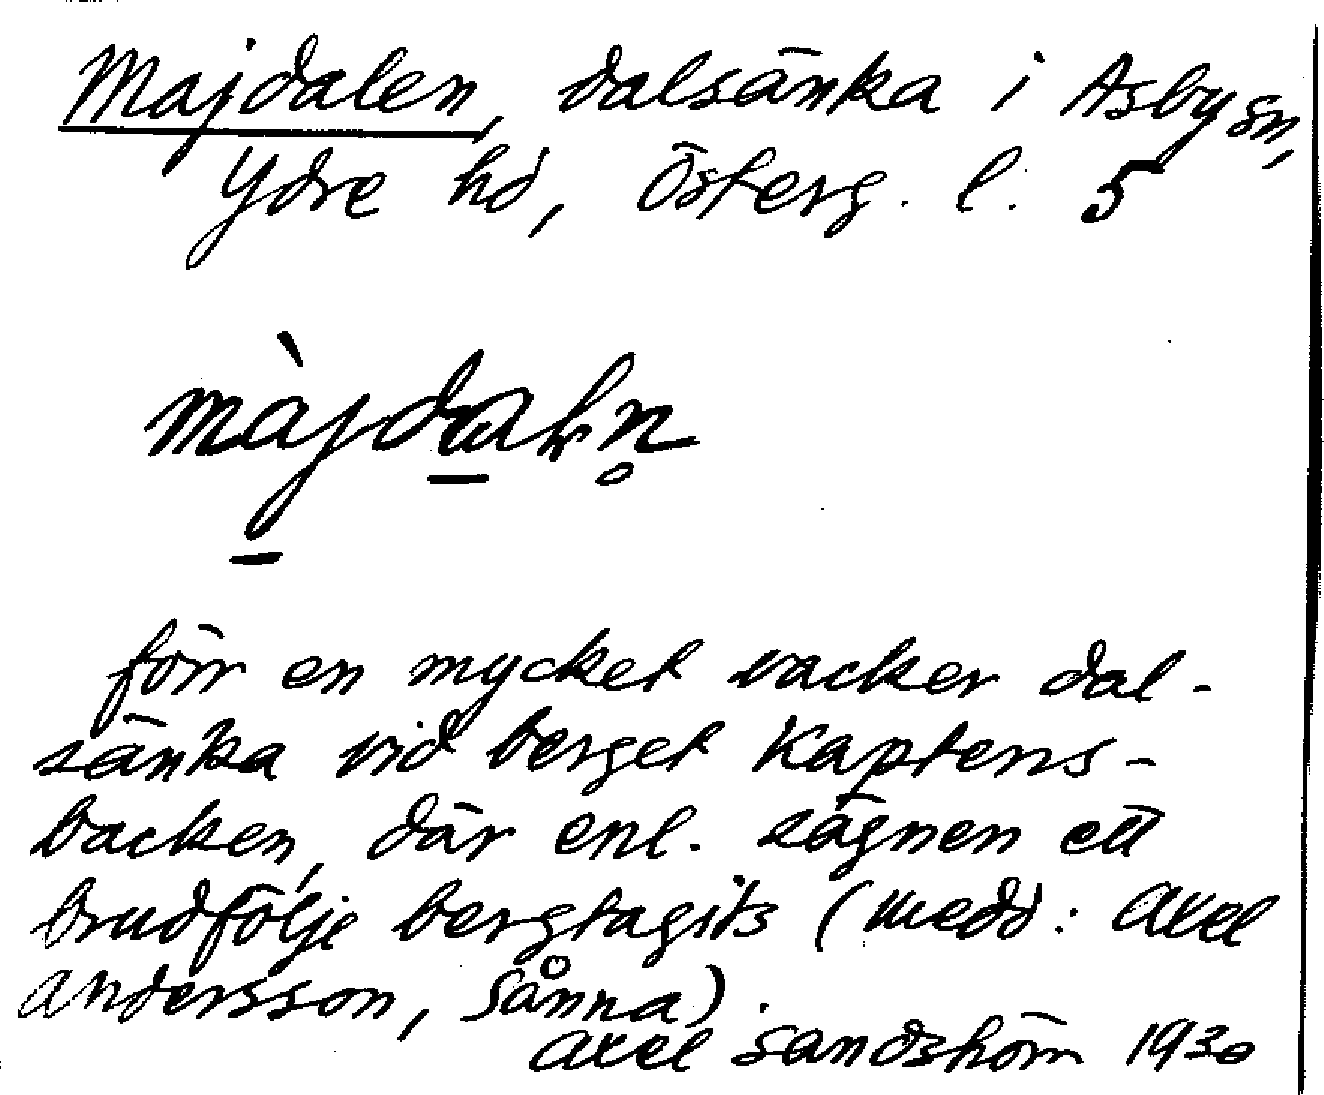 Majdalen, dalsänka i Asby sn,
Ydre hd, Österg. l. 5
màjdaln̥
förr en mycket vacker dal-
sänka vid berget Kaptens-
backen, där enl. sägnen ett
brudfölje bergtagits (medd: Axel
Andersson, Sånna).
Axel Sandström 1930